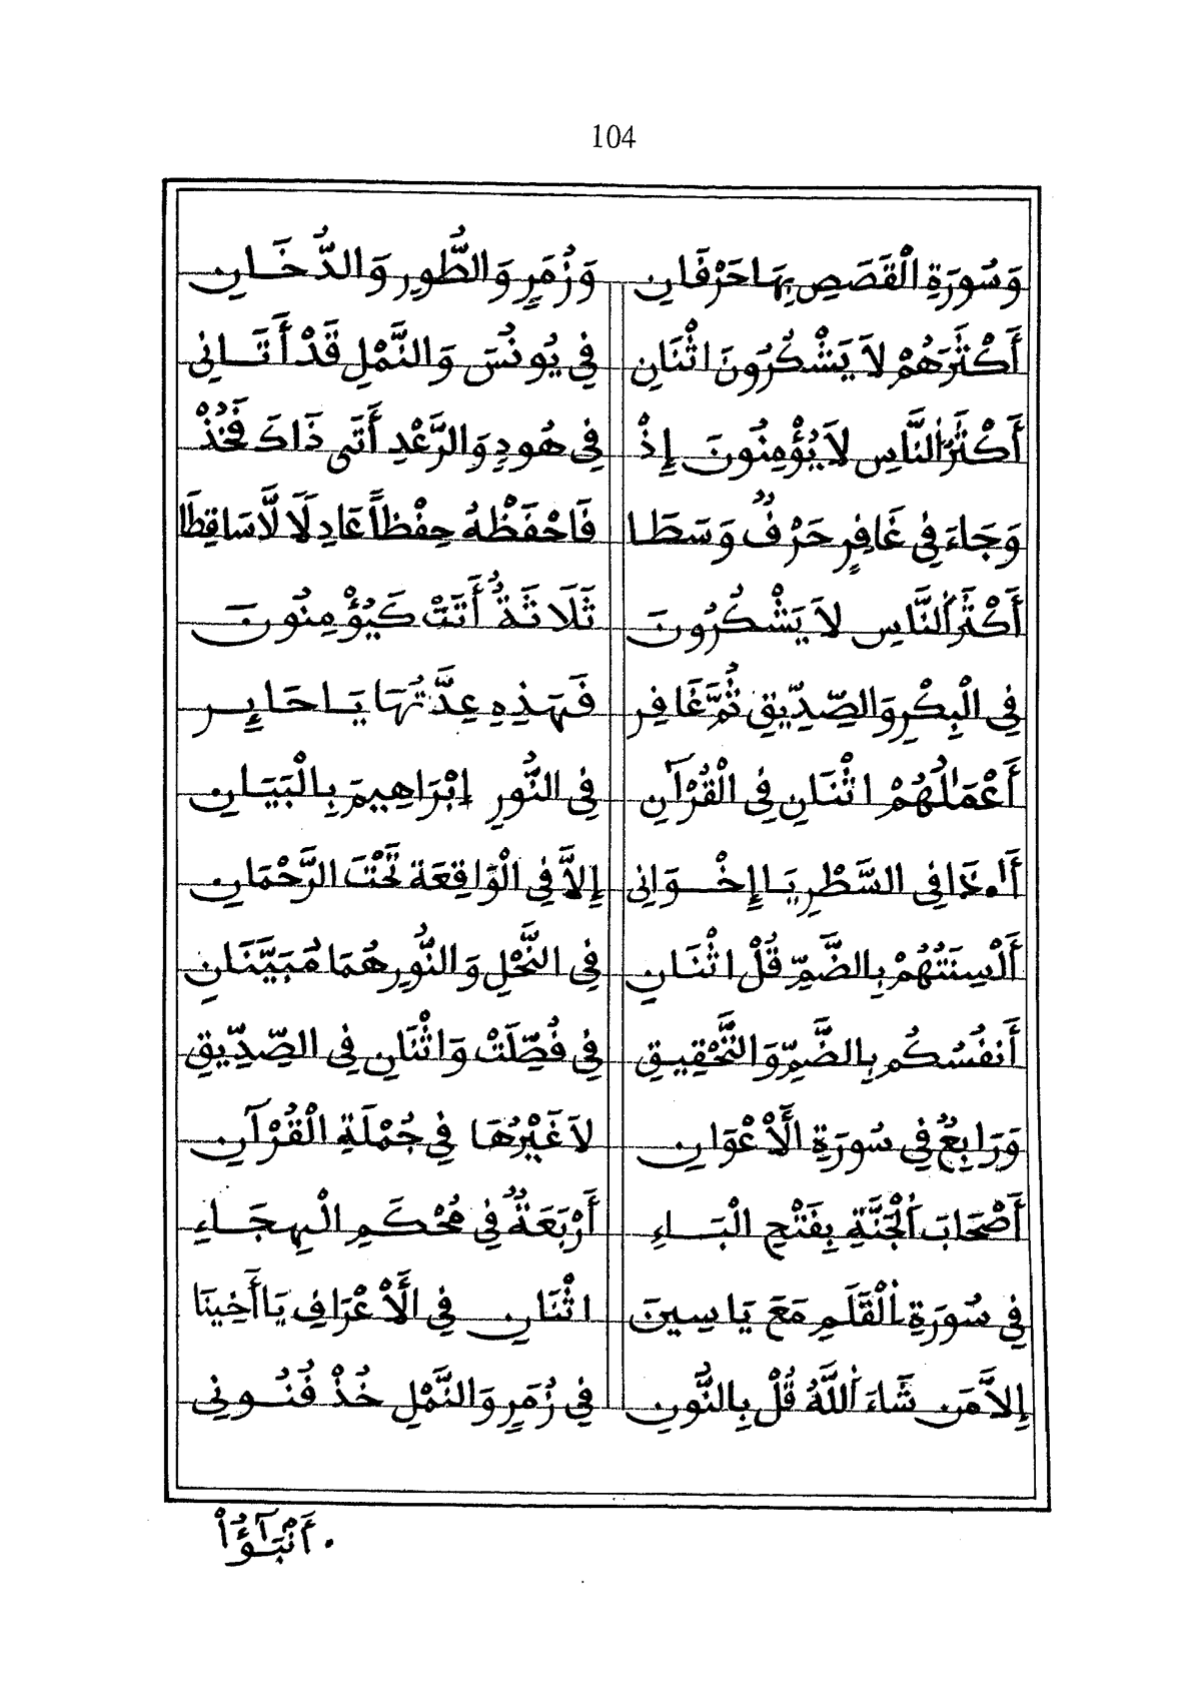 104
وَسُورَةِ الْقَصَصِ بِهَا حَرْفَانِ وَزُمَرٍ وَالطُّورِ وَالدُّخَانِ
أَكْثَرَهُمْ لاَ يَشْكُرُونَ اثْنَانِ فِي يُونُسَ وَالنَّمْلِ قَدْ أَتَانِى
أَكْثَرُ النَّاسِ لاَ يُؤْمِنُونَ إِذْ فِي هُودٍ وَالرَّعْدِ أَتَى ذَاكَ فَخُذْ
وَجَاءَ فِي غَافِرٍ حَرْفٌ وَسَطَا فَاحْفَظْهُ حِفْظاً عَادِلَا لَّا سَاقِطَا
أَكْثَرَ النَّاسِ لاَ يَشْكُرُونَ ثَلَاثَةٌ أَتَتْ كَيُؤْمِنُونَ
فِي الْبِكْرِ وَالصِّدِّيقِ ثُمَّ غَافِرِ فَهَذِهِ عِدَّتُهَا يَا حَايِرِ
أَعْمَالُهُمْ اثْنَانِ فِي الْقُرْآنِ فِي النُّورِ إِبْرَاهِيمَ بِالْبَيَانِ
أَ.ذَا فِي السَّطْرِ يَا إِخْوَانِى إِلاَّ فِي الْوَاقِعَة تَحْتَ الرَّحْمَانِ
أَلْسِنَتُهُمْ بِالضَّمِّ قُلْ اثْنَانِ فِي النَّحْلِ وَالنُّورِ هُمَا مُبَيَّنَانِ
أَنفُسُكُم بِالضَّمِّ وَالتَّحْقِيقِ فِي فُصِّلَتْ وَاثْنَانِ فِي الصِّدِّيقِ
وَرَابِعٌ فِي سُورَةِ الَأَعْوَانِ لاَ غَيْرُهَا فِي جُمْلَةِ الْقُرْآنِ
أَصْحَابَ اَلْجَنَّةِ بِفَتْحِ الْبَاءِ أَرْبَعَةٌ فِي مُحْكَمِ الْهِجَاءِ
فِي سُورَةِ اَلْقَلَمِ مَعَ يَاسِينَ اثْنَانِ فِي الَأَعْرَافِ يَا أَخِينَا
إِلاَّ مَن شَاءَ اَللَّهُ قُلْ بِالنُّونِ فِي زُمَرٍ وَالنَّمْلِ خُذْ فُنُونِى
. أَنْبَـٰٓؤُاْ